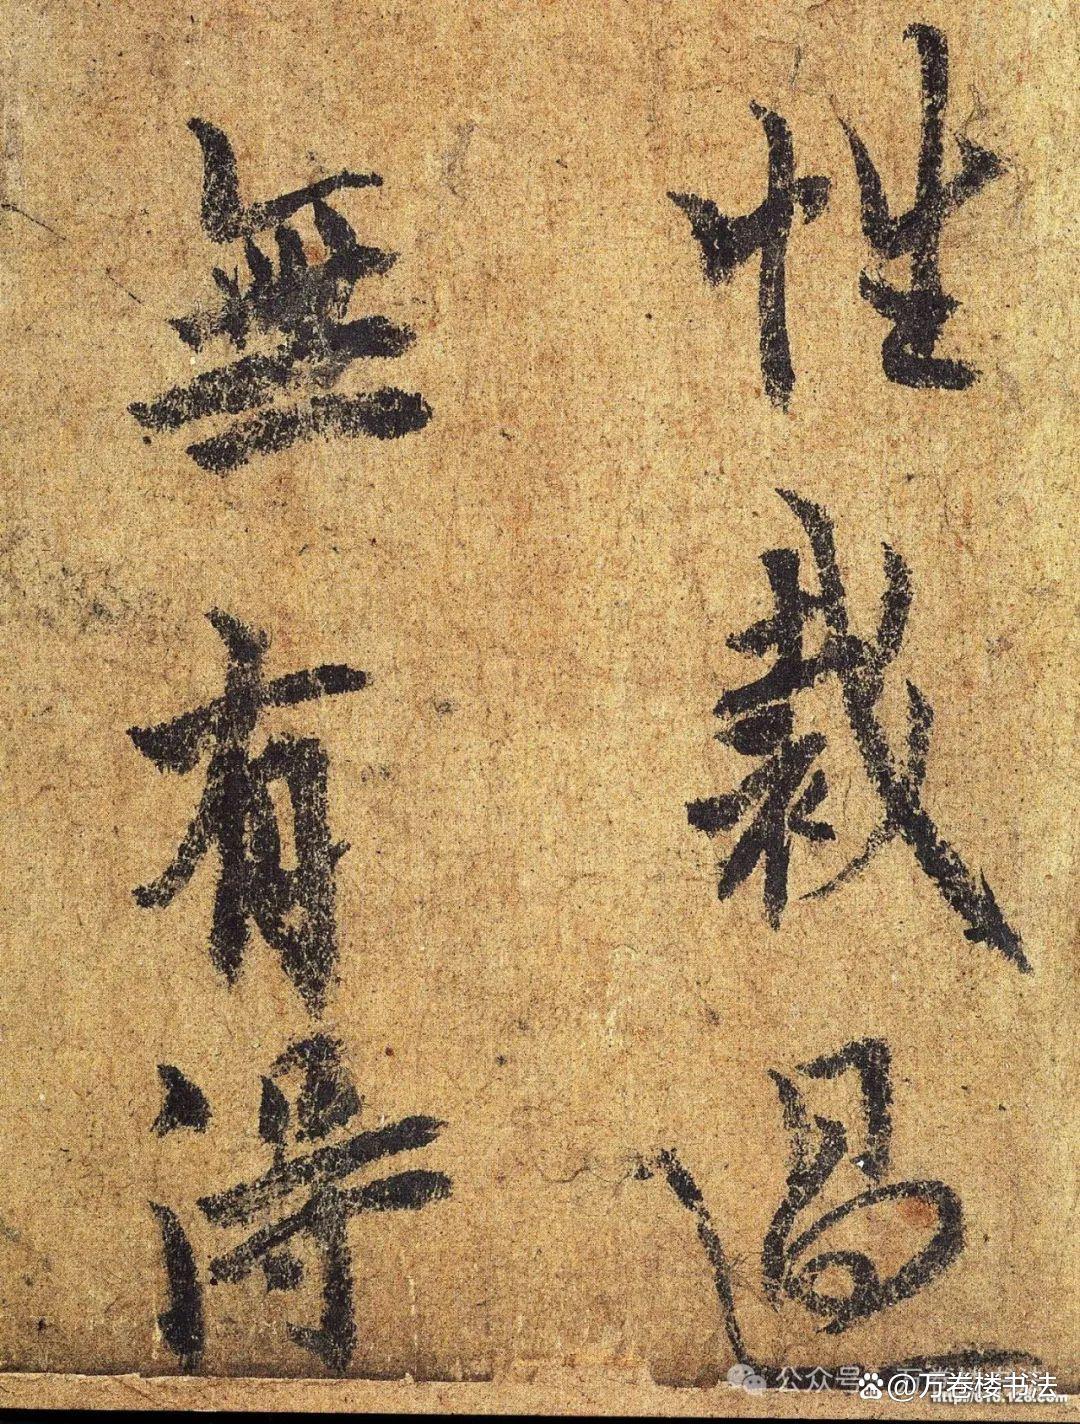 性裁過
無有得
公众号
@万卷楼书法